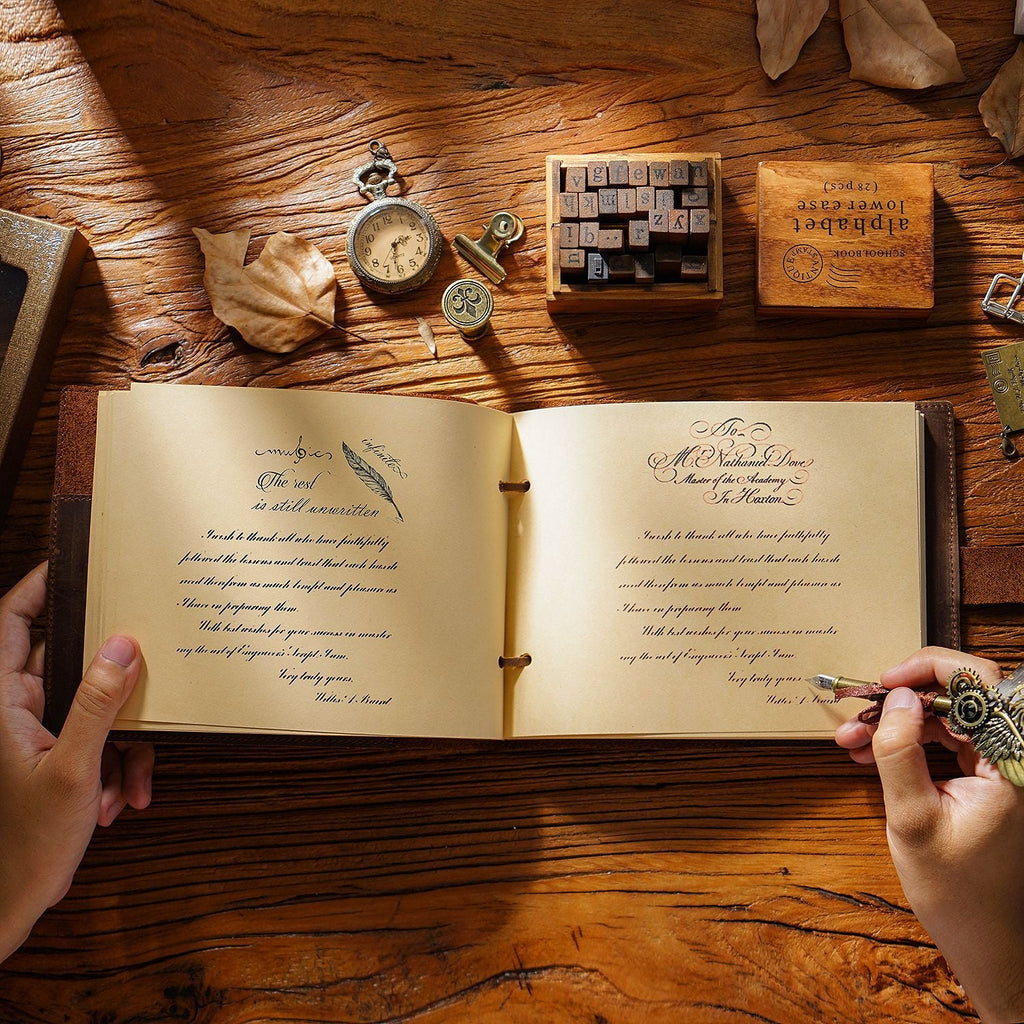 music
infinite
The rest
is still unwritten
I wish to thank all who have faithfully
followed the lessons and trust that each has de
rived therefrom as much benefit and pleasure as
I have in preparing them.
With best wishes for your success in master
ing the art of Engrossers' Script I am.
Very truly yours,
To
Mr. Nathaniel Dove
Master of the Academy
In Hoxton
I wish to thank all who have faithfully
followed the lessons and trust that each has de
rived therefrom as much benefit and pleasure as
I have in preparing them
With best wishes for your success in master
ing the art of Engrossers' Script I am.
Very truly yours,
v g f e w a n
SCHOOLBOOK
ANTIQUE
alphabet
lower case
(28 pcs)